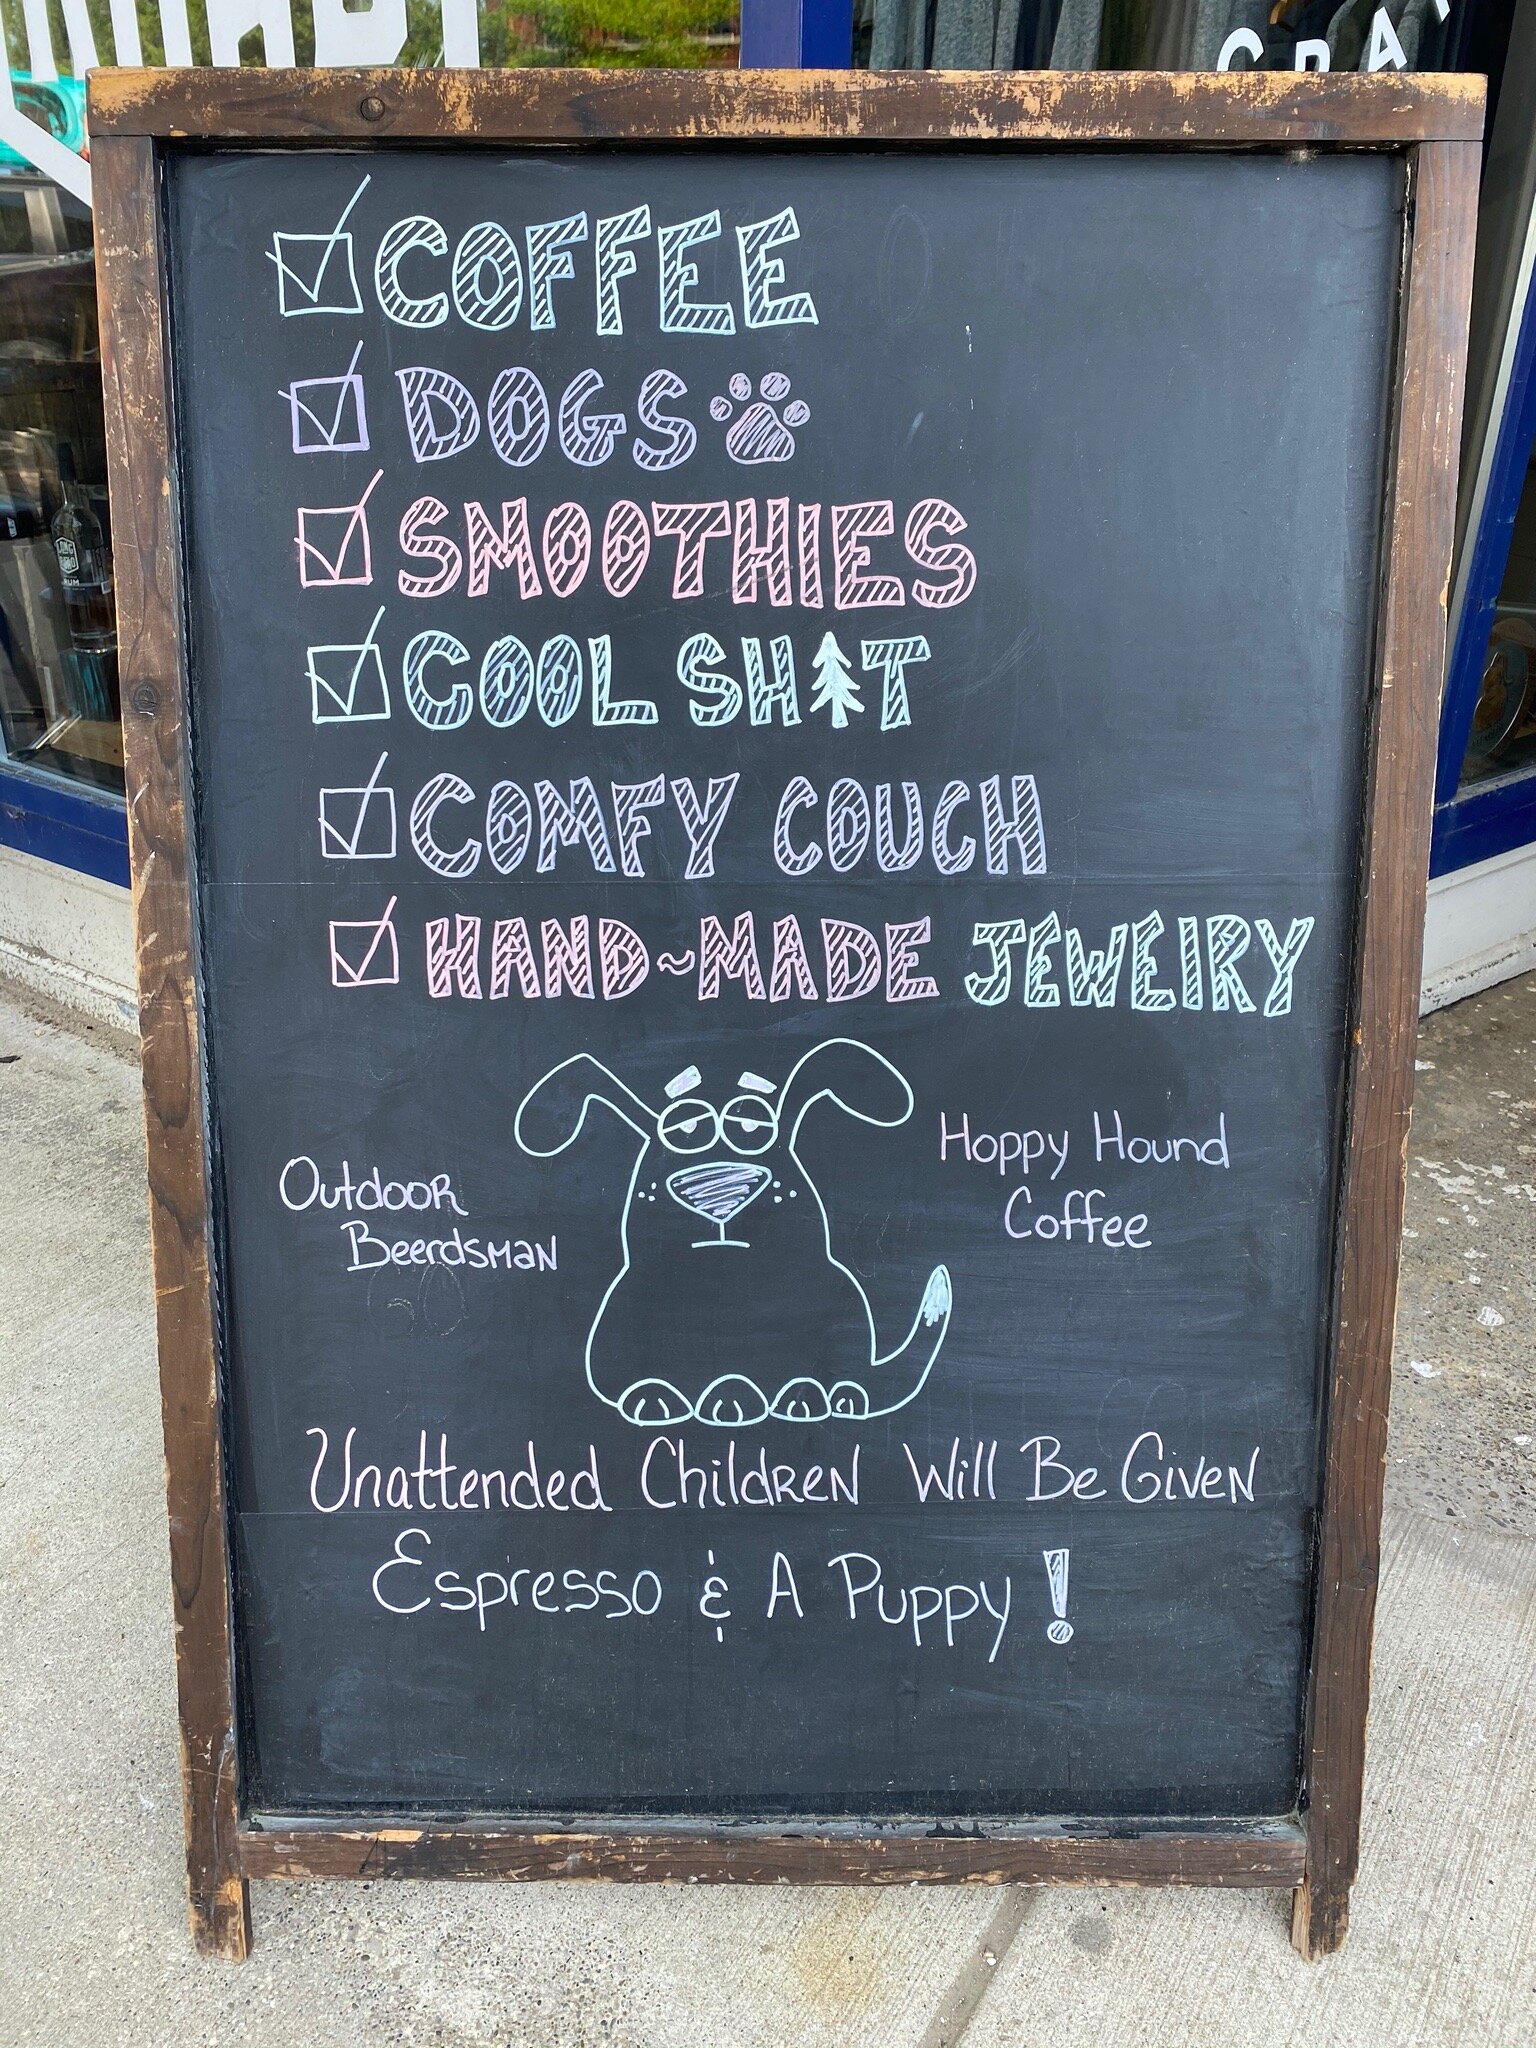 CRA
COFFEE
DOGS
SMOOTHIES
COOL SH🌲T
COMFY COUCH
HAND~MADE JEWElRY
Outdoor
Beerdsman
Hoppy Hound
Coffee
Unattended Children Will Be Given
Espresso & A Puppy!
RUM